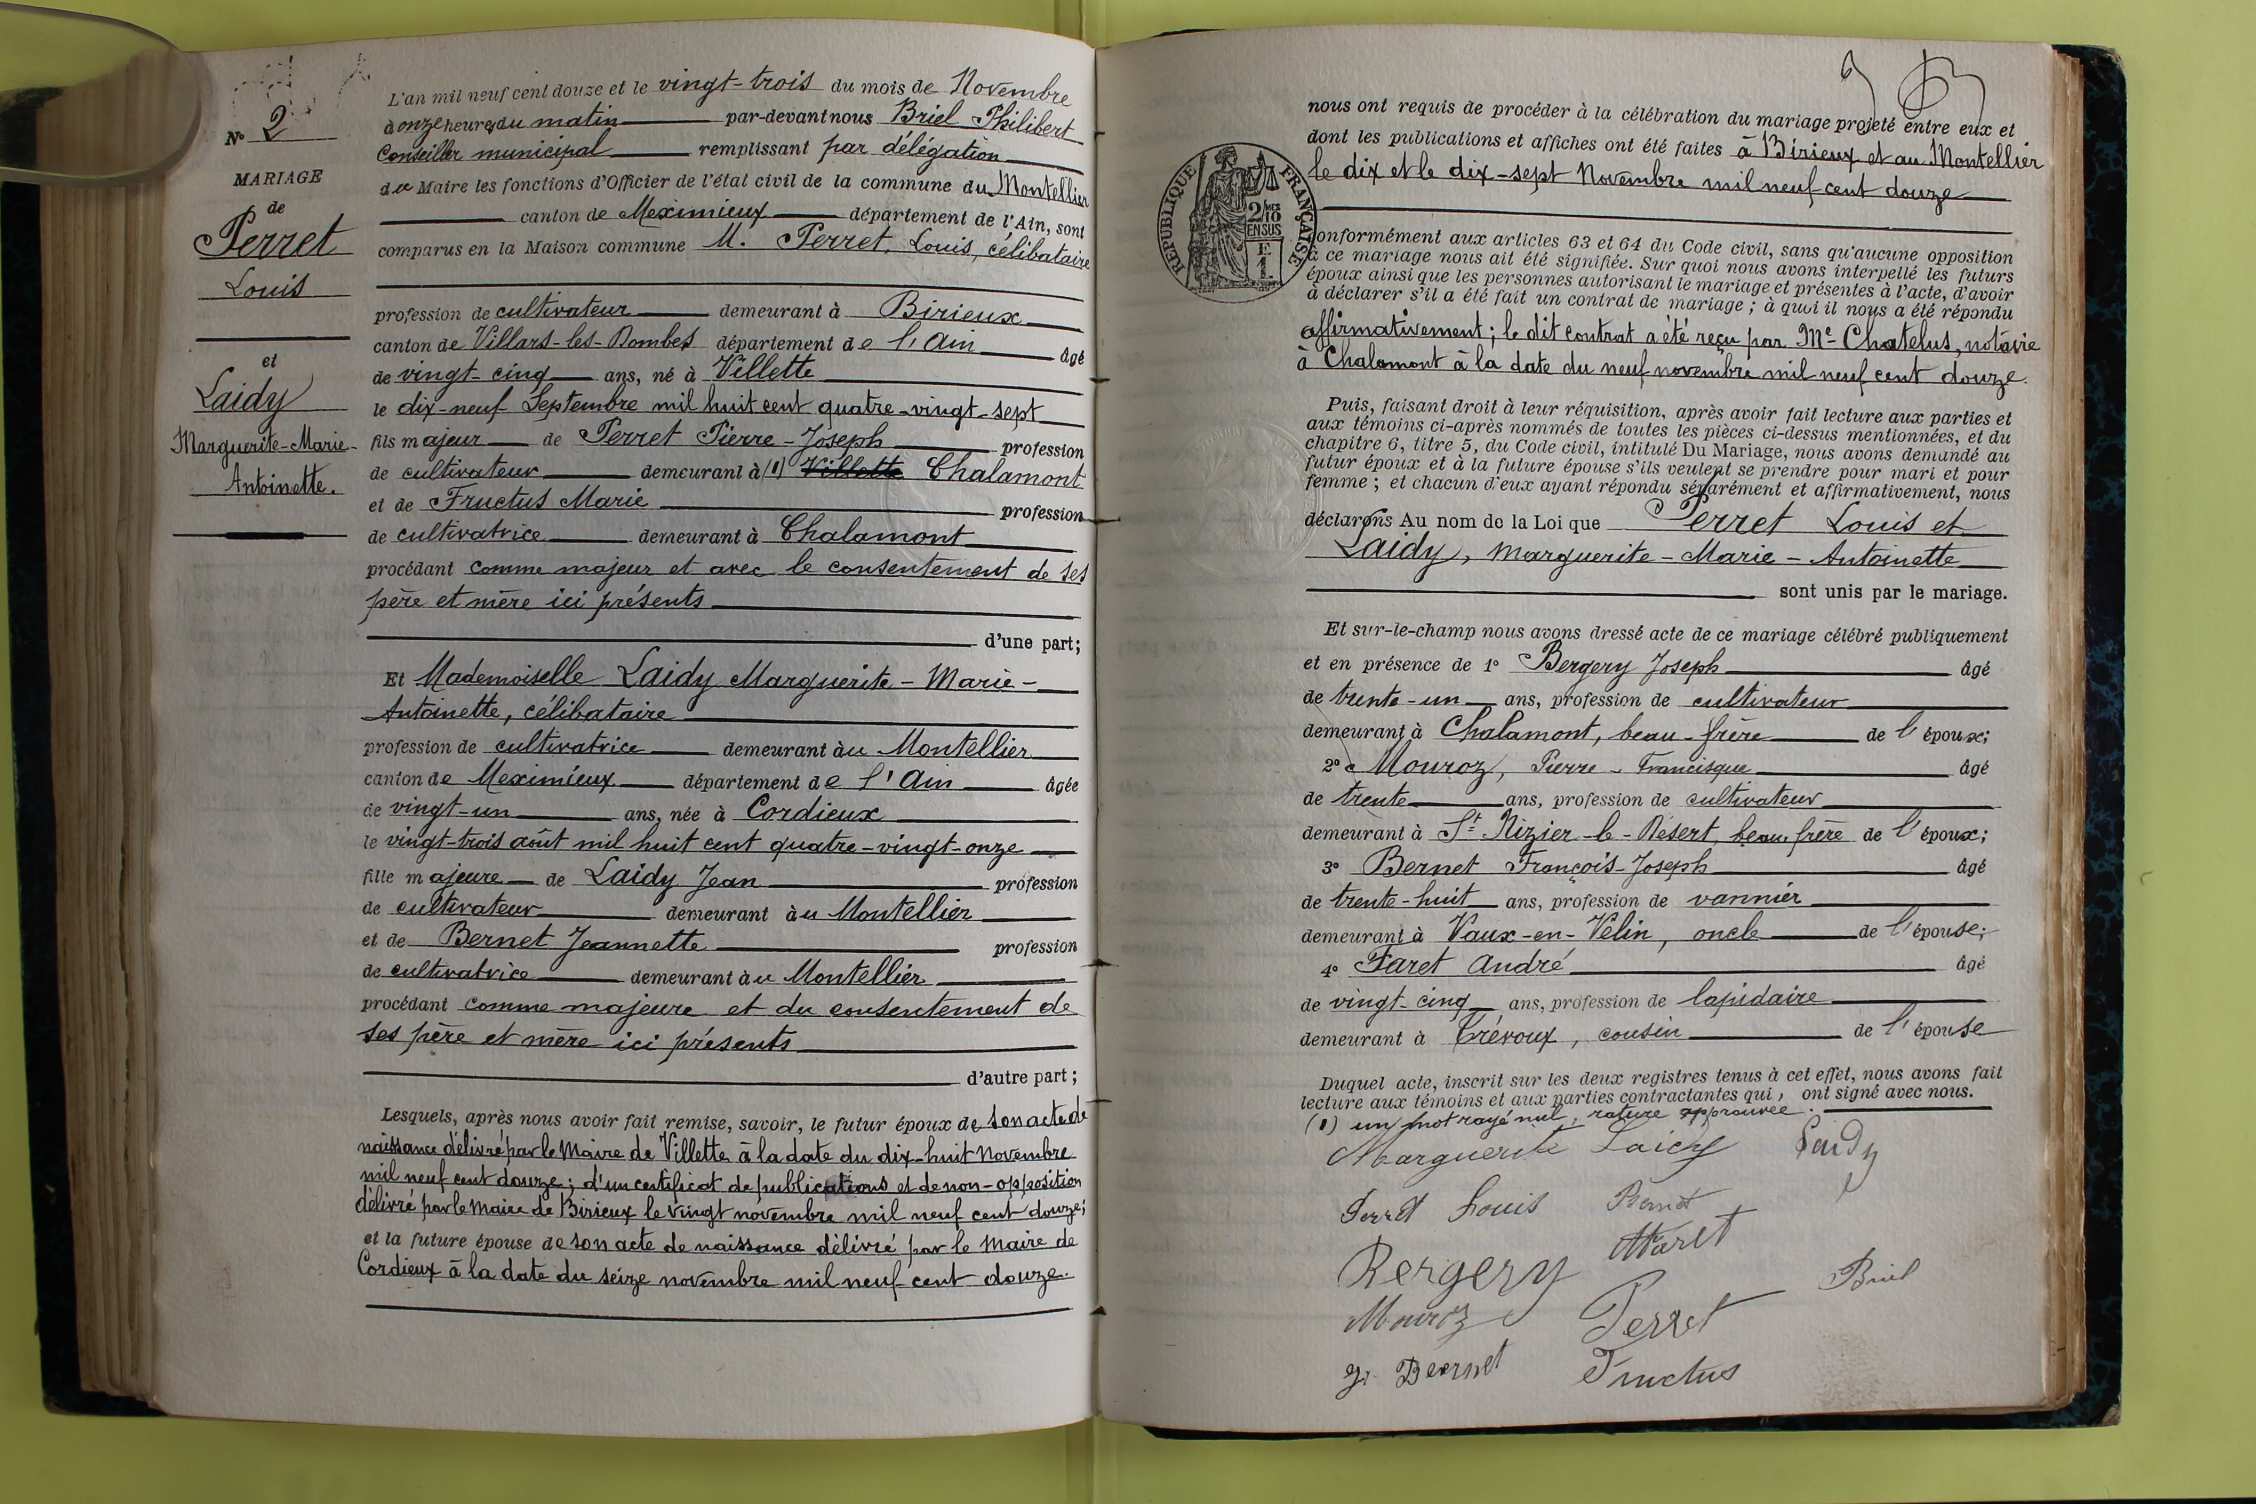 N° 2
MARIAGE
de
Perret
Louis
et
Laidy
Marguerite-Marie-
Antoinette.
L'an mil neuf cent douze et le vingt-trois du mois de Novembre
à onze heures du matin par-devant nous Briel Philibert
Conseiller municipal remplissant par délégation
du Maire les fonctions d'Officier de l'état civil de la commune du Montellier
canton de Meximieux département de l'Ain, sont
comparus en la Maison commune M. Perret, Louis, célibataire
profession de cultivateur demeurant à Birieux
canton de Villars-les-Dombes département de l'Ain âgé
de vingt-cinq ans, né à Villette
le dix-neuf Septembre mil huit cent quatre-vingt-sept
fils majeur de Perret Pierre-Joseph profession
de cultivateur demeurant à (1) Villette Chalamont
et de Fructus Marie profession
de cultivatrice demeurant à Chalamont
procédant comme majeur et avec le consentement de ses
père et mère ici présents
d'une part;
Et Mademoiselle Laidy Marguerite-Marie-
Antoinette, célibataire
profession de cultivatrice demeurant àu Montellier
canton de Meximieux département de l'Ain âgée
de vingt-un ans, née à Cordieux
le vingt-trois août mil huit cent quatre-vingt-onze
fille majeure de Laidy Jean profession
de cultivateur demeurant àu Montellier
et de Bernet Jeannette profession
de cultivatrice demeurant àu Montellier
procédant comme majeure et du consentement de
ses père et mère ici présents
d'autre part;
Lesquels, après nous avoir fait remise, savoir, le futur époux de son acte de
naissance délivré par le Maire de Villette à la date du dix-huit Novembre
mil neuf cent douze; d'un certificat de publications et de non-opposition
délivré par le Maire de Birieux le vingt novembre mil neuf cent douze;
et la future épouse de son acte de naissance délivré par le Maire de
Cordieux à la date du seize novembre mil neuf cent douze.
nous ont requis de procéder à la célébration du mariage projeté entre eux et
dont les publications et affiches ont été faites à Birieux et au Montellier
le dix et le dix-sept Novembre mil neuf cent douze
RÉPUBLIQUE FRANÇAISE
2/10 MES
EN SUS
E
1
Conformément aux articles 63 et 64 du Code civil, sans qu'aucune opposition
à ce mariage nous ait été signifiée. Sur quoi nous avons interpellé les futurs
époux ainsi que les personnes autorisant le mariage et présentes à l'acte, d'avoir
à déclarer s'il a été fait un contrat de mariage; à quoi il nous a été répondu
affirmativement; le dit contrat a été reçu par Me Chatelus, notaire
à Chalamont à la date du neuf novembre mil neuf cent douze.
Puis, faisant droit à leur réquisition, après avoir fait lecture aux parties et
aux témoins ci-après nommés de toutes les pièces ci-dessus mentionnées, et du
chapitre 6, titre 5, du Code civil, intitulé Du Mariage, nous avons demandé au
futur époux et à la future épouse s'ils veulent se prendre pour mari et pour
femme; et chacun d'eux ayant répondu séparément et affirmativement, nous
déclarons Au nom de la Loi que Perret Louis et
Laidy, Marguerite-Marie-Antoinette
sont unis par le mariage.
Et sur-le-champ nous avons dressé acte de ce mariage célébré publiquement
et en présence de 1° Bergery Joseph âgé
de trente-un ans, profession de cultivateur
demeurant à Chalamont, beau-frère de l'époux;
2° Mouroz, Pierre-Francisque âgé
de trente ans, profession de cultivateur
demeurant à St Nizier-le-Désert, beau-frère de l'époux;
3° Bernet François-Joseph âgé
de trente-huit ans, profession de vannier
demeurant à Vaux-en-Velin, oncle de l'épouse;
4° Faret André âgé
de vingt-cinq ans, profession de lapidaire
demeurant à Trévoux, cousin de l'épouse
Duquel acte, inscrit sur les deux registres tenus à cet effet, nous avons fait
lecture aux témoins et aux parties contractantes qui, ont signé avec nous.
(1) un mot rayé nul, rature approuvée.
Marguerite Laidy Laidy
Perret Louis Bernet
Bergery AFaret
Mouroz Perret Briel
Bernet Fructus